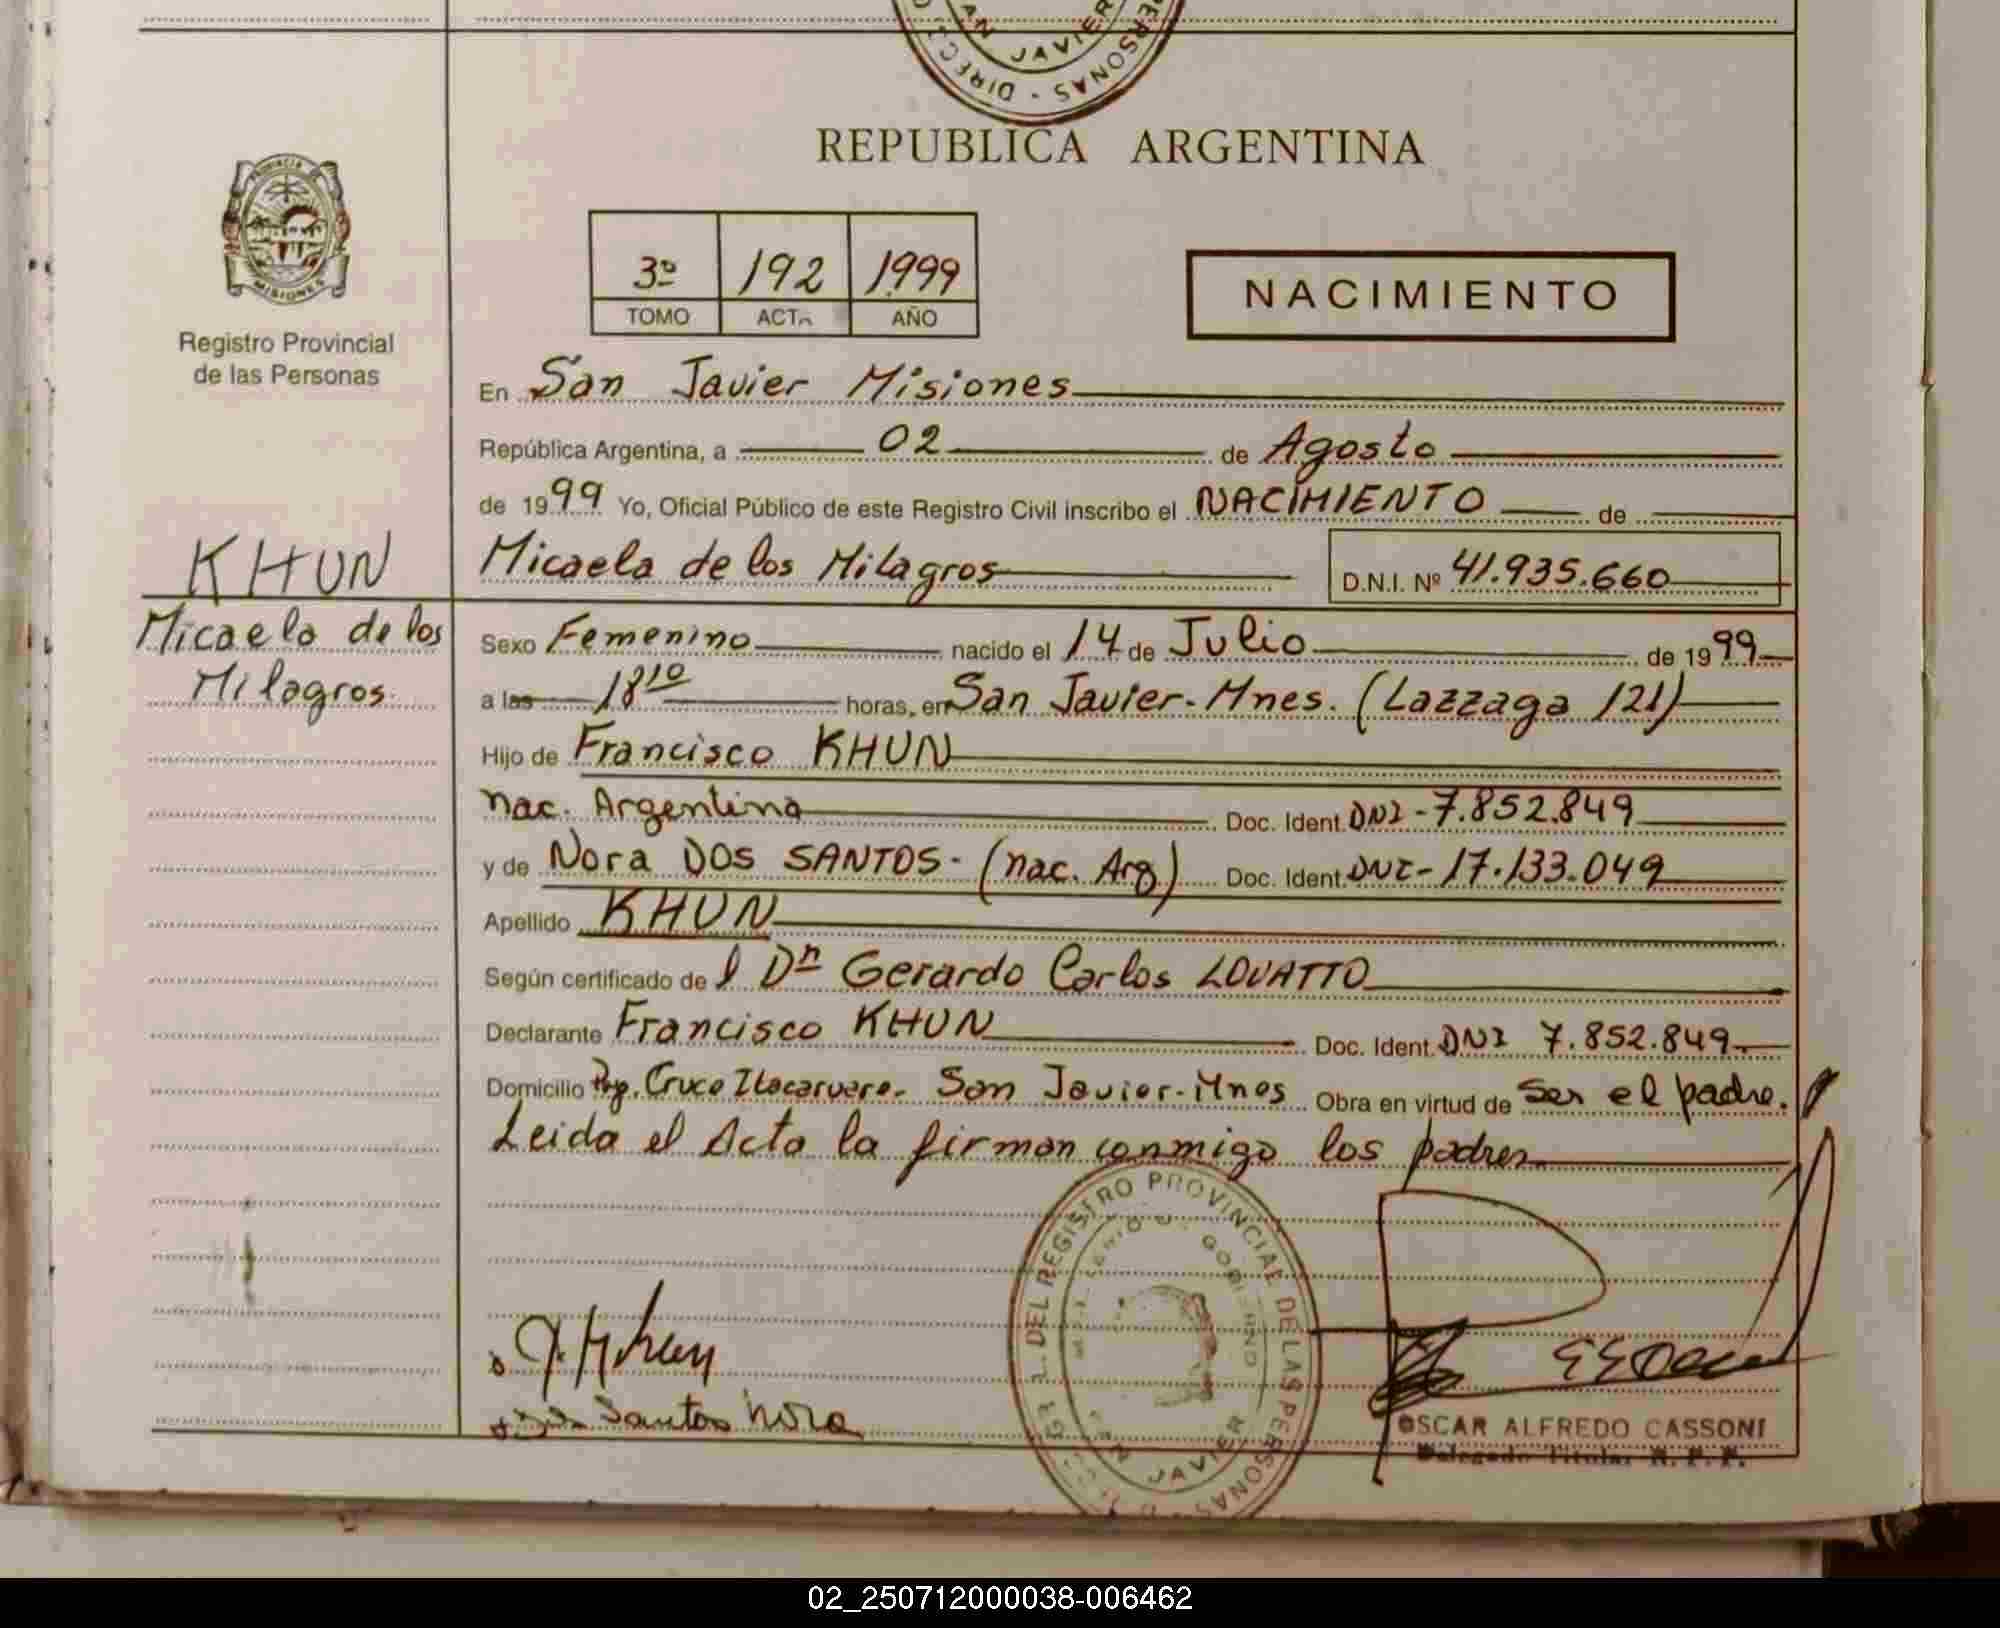 SAN JAVIER
PERSONAS - DIRECC
REPUBLICA ARGENTINA
PROVINCIA DE
MISIONES
3º 192 1999
TOMO ACTA AÑO
NACIMIENTO
Registro Provincial
de las Personas
En San Javier Misiones
República Argentina, a 02 de Agosto
de 1999 Yo, Oficial Público de este Registro Civil inscribo el NACIMIENTO de
KHUN
Micaela de los Milagros D.N.I. Nº 41.935.660
Micaela de los
Milagros
Sexo Femenino nacido el 14 de Julio de 1999
a las 18 10 horas, en San Javier-Mnes. (Lazzaga 121)
Hijo de Francisco KHUN
nac. Argentina Doc. Ident. DNI-7.852.849
y de Nora DOS SANTOS- (nac. Arg) Doc. Ident. DNI-17.133.049
Apellido KHUN
Según certificado de l Dn Gerardo Carlos LOVATTO
Declarante Francisco KHUN Doc. Ident. DNI 7.852.849
Domicilio San Javier-Mnes Obra en virtud de ser el padre.
Leida el Acta la firman conmigo los padres
DEL REGISTRO PROVINCIAL DE LAS PERSONAS
GOBIERNO
SAN JAVIER
Santos Nora
OSCAR ALFREDO CASSONI
Delegado Titular R. P. P.
02_250712000038-006462